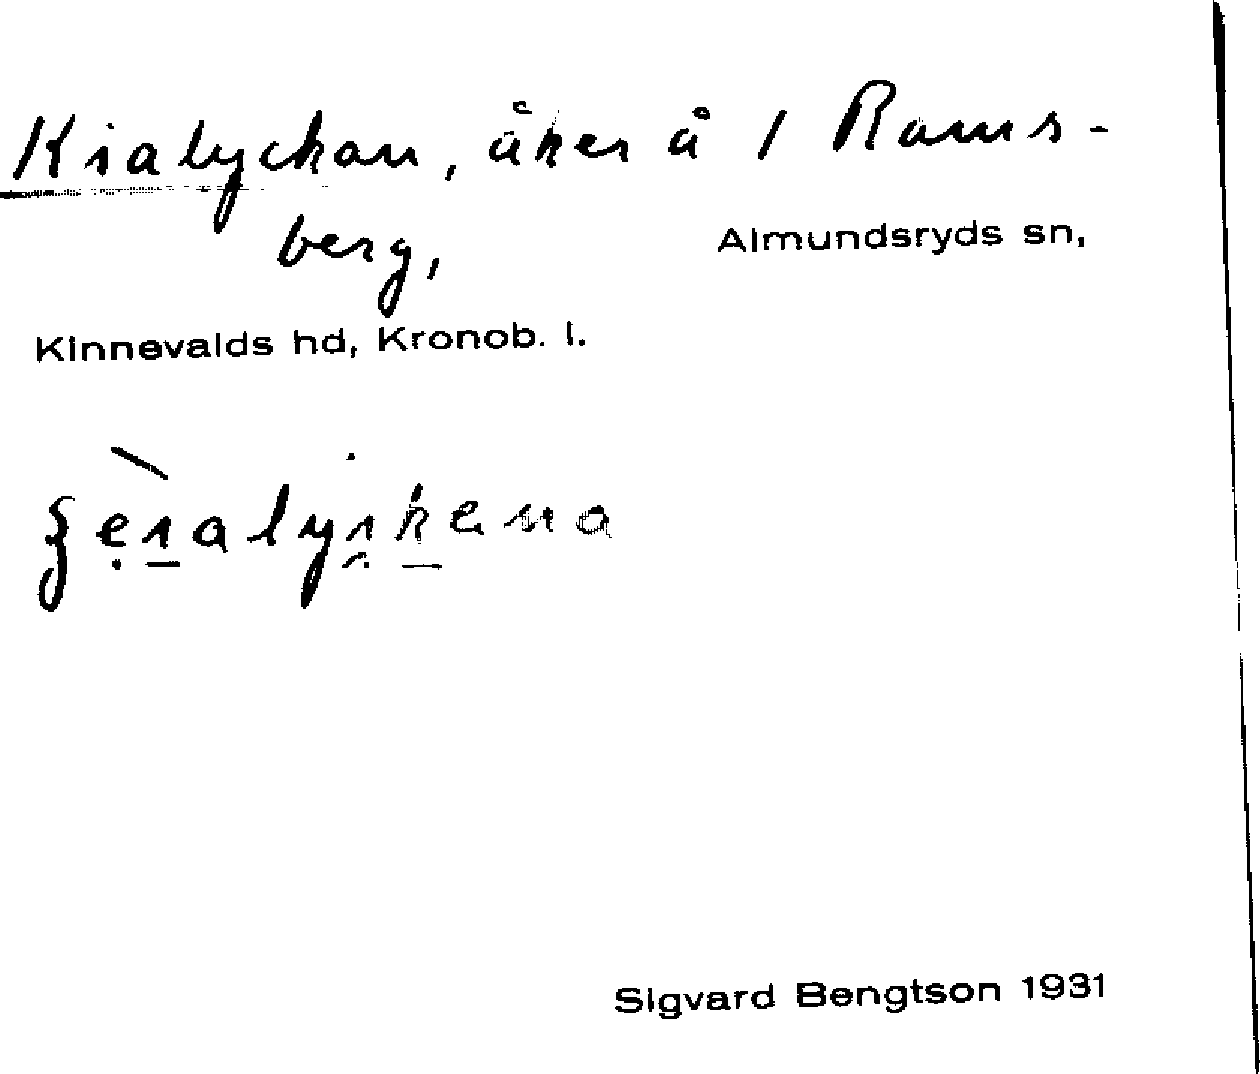 Kialyckan, åker å 1 Rams-
berg,
Almundsryds sn,
Kinnevalds hd, Kronob. l.
Sigvard Bengtson 1931